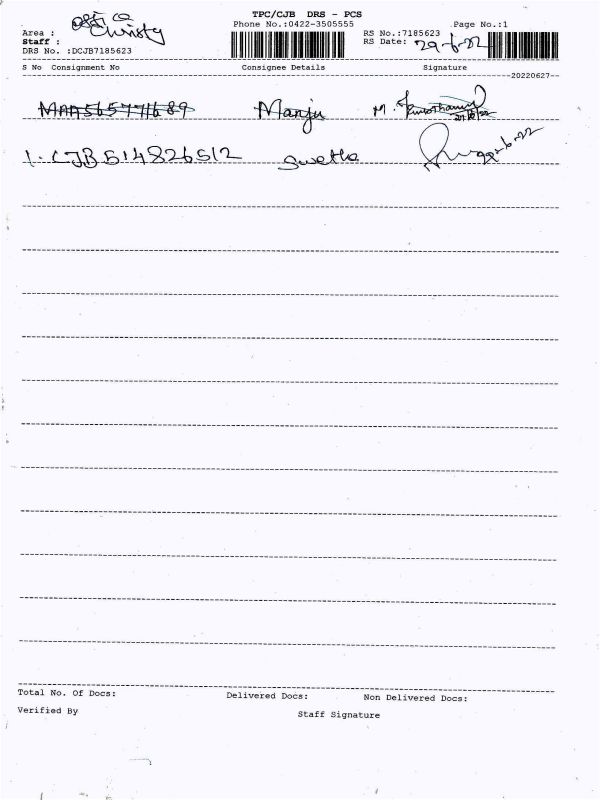 TPC/CJB DRS - PCS
Area :
Phone No.:0422-3505555
Page No.:1
Christy
Staff :
RS No.:7185623
DRS No. :DCJB7185623
RS Date: 29-6-22
S No Consignment No Consignee Details Signature
--20220627--
MAA565771689 Manju M.
1. CJB514826512 Swetha 29-6-22
Total No. Of Docs: Delivered Docs: Non Delivered Docs:
Verified By Staff Signature